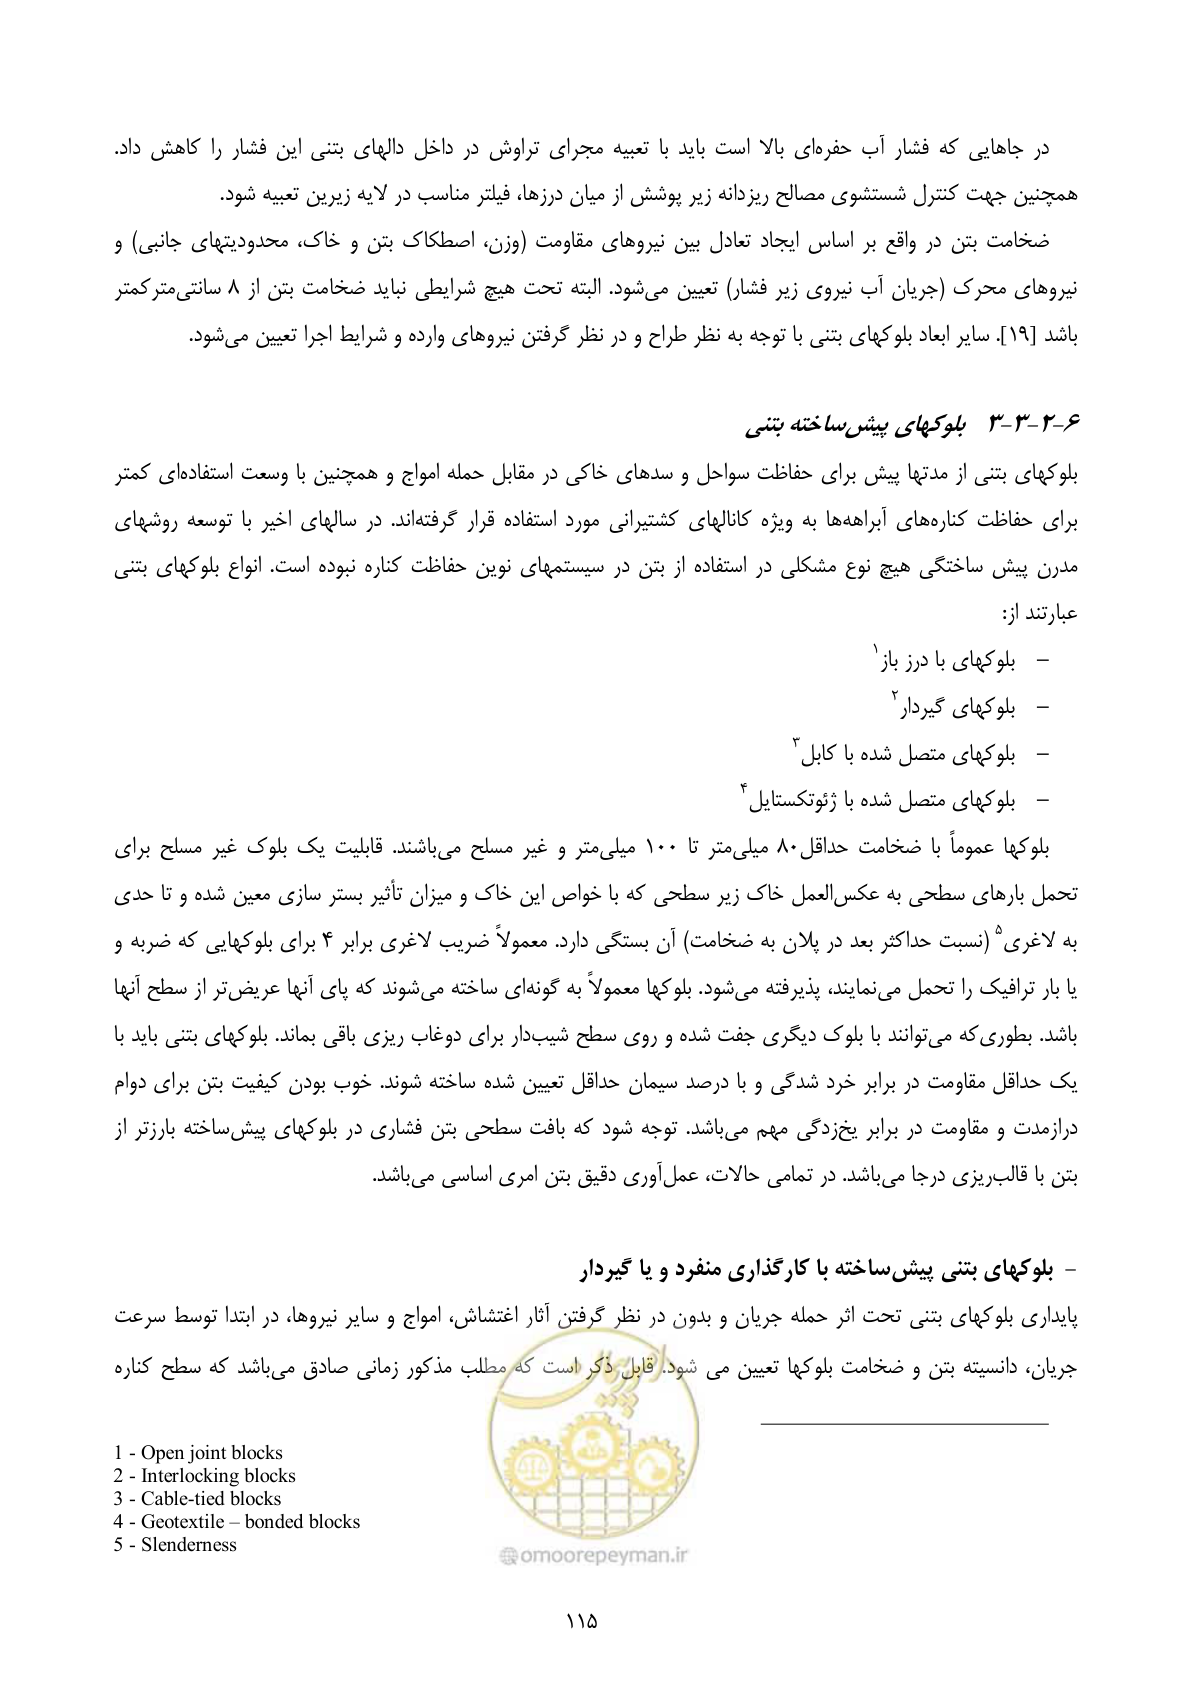 در جاهایی که فشار آب حفره‌ای بالا است باید با تعبیه مجرای تراوش در داخل دالهای بتنی این فشار را کاهش داد.
همچنین جهت کنترل شستشوی مصالح ریزدانه زیر پوشش از میان درزها، فیلتر مناسب در لایه زیرین تعبیه شود.
ضخامت بتن در واقع بر اساس ایجاد تعادل بین نیروهای مقاومت (وزن، اصطکاک بتن و خاک، محدودیتهای جانبی) و
نیروهای محرک (جریان آب نیروی زیر فشار) تعیین می‌شود. البته تحت هیچ شرایطی نباید ضخامت بتن از ۸ سانتی‌مترکمتر
باشد [۱۹]. سایر ابعاد بلوکهای بتنی با توجه به نظر طراح و در نظر گرفتن نیروهای وارده و شرایط اجرا تعیین می‌شود.
۶-۲-۳-۳ بلوکهای پیش‌ساخته بتنی
بلوکهای بتنی از مدتها پیش برای حفاظت سواحل و سدهای خاکی در مقابل حمله امواج و همچنین با وسعت استفاده‌ای کمتر
برای حفاظت کناره‌های آبراهه‌ها به ویژه کانالهای کشتیرانی مورد استفاده قرار گرفته‌اند. در سالهای اخیر با توسعه روشهای
مدرن پیش ساختگی هیچ نوع مشکلی در استفاده از بتن در سیستمهای نوین حفاظت کناره نبوده است. انواع بلوکهای بتنی
عبارتند از:
– بلوکهای با درز باز۱
– بلوکهای گیردار۲
– بلوکهای متصل شده با کابل۳
– بلوکهای متصل شده با ژئوتکستایل۴
بلوکها عموماً با ضخامت حداقل۸۰ میلی‌متر تا ۱۰۰ میلی‌متر و غیر مسلح می‌باشند. قابلیت یک بلوک غیر مسلح برای
تحمل بارهای سطحی به عکس‌العمل خاک زیر سطحی که با خواص این خاک و میزان تأثیر بستر سازی معین شده و تا حدی
به لاغری۵ (نسبت حداکثر بعد در پلان به ضخامت) آن بستگی دارد. معمولاً ضریب لاغری برابر ۴ برای بلوکهایی که ضربه و
یا بار ترافیک را تحمل می‌نمایند، پذیرفته می‌شود. بلوکها معمولاً به گونه‌ای ساخته می‌شوند که پای آنها عریض‌تر از سطح آنها
باشد. بطوری‌که می‌توانند با بلوک دیگری جفت شده و روی سطح شیب‌دار برای دوغاب ریزی باقی بماند. بلوکهای بتنی باید با
یک حداقل مقاومت در برابر خرد شدگی و با درصد سیمان حداقل تعیین شده ساخته شوند. خوب بودن کیفیت بتن برای دوام
درازمدت و مقاومت در برابر یخ‌زدگی مهم می‌باشد. توجه شود که بافت سطحی بتن فشاری در بلوکهای پیش‌ساخته بارزتر از
بتن با قالب‌ریزی درجا می‌باشد. در تمامی حالات، عمل‌آوری دقیق بتن امری اساسی می‌باشد.
– بلوکهای بتنی پیش‌ساخته با کارگذاری منفرد و یا گیردار
پایداری بلوکهای بتنی تحت اثر حمله جریان و بدون در نظر گرفتن آثار اغتشاش، امواج و سایر نیروها، در ابتدا توسط سرعت
جریان، دانسیته بتن و ضخامت بلوکها تعیین می شود. قابل ذکر است که مطلب مذکور زمانی صادق می‌باشد که سطح کناره
1 - Open joint blocks
2 - Interlocking blocks
3 - Cable-tied blocks
4 - Geotextile – bonded blocks
5 - Slenderness
@omoorepeyman.ir
۱۱۵